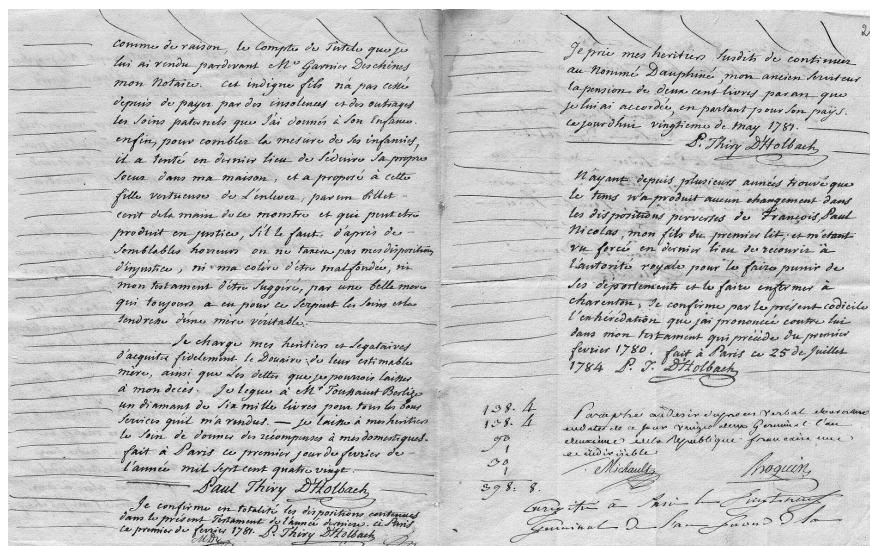 comme de raison, le Compte de Tutele que je
lui ai rendu pardevant Me Garnier Deschênes
mon Notaire. cet indigne fils n'a pas cessé
depuis de payer par des insolences et des outrages
les soins paternels que j'ai donnés à son Enfance.
enfin, pour combler la mesure de ses infamies,
il a tenté en dernier lieu de séduire sa propre
soeur dans ma maison, et a proposé à cette
fille vertueuse de L'enlever, par un billet
écrit de la main de ce monstre et qui peut etre
produit en justice, s'il le faut. d'après de
semblables horreurs on ne taxera pas mes dispositions
d'injustice, ni ma colère d'être mal fondée, ni
mon testament d'être suggéré, par une belle mere
qui toujours a eu pour ce serpent les soins et la
tendresse d'une mère veritable.
Je charge mes heritiers et Legataires
d'acquitter fidelement le Douaire de leur estimable
mère, ainsi que les dettes que je pourrois laisser
à mon decès. Je legue à Mr Toussaint
un diamant de six mille livres pour tous les bons
services qu'il m'a rendus. — Je laisse à mes heritiers
le soin de donner des récompenses à mes domestiques.
fait à Paris ce premier jour de fevrier de
l'année mil sept cent quatre vingt.
Paul Thiry D'Holbach
Je confirme en totalité les dispositions contenues
dans le présent Testament de l'année derniere. à Paris
ce premier de fevrier 1781. P. Thiry D'Holbach
2
Je prie mes heritiers susdits de continuer
au nommé Dauphiné, mon ancien serviteur
la pension de deux cent livres par an que
je lui ai accordée en partant pour son pays.
ce jourdhui vingtieme de may 1781.
P. Thiry D'Holbach
N'ayant depuis plusieurs années trouvé que
le tems n'a produit aucun changement dans
les dispositions perverses de François, Paul
Nicolas, mon fils du premier lit; et m'étant
vu forcé en dernier lieu de recourir à
l'autorité royale pour le faire punir de
ses déportements et le faire enfermer à
charenton, Je confirme par le présent codicile
l'exhérédation que j'ai prononcée contre lui
dans mon testament qui précède du premier
fevrier 1780. fait à Paris ce 25 de Juillet
1784 P. T. D'Holbach
138. 4
138. 4
90
1
30
1
398. 8.
Paraphé au desir du procès verbal d'ouverture
en date de ce jour vingt deux Germinal l'an
deuxieme de la République française une
et indivisible
Michault Roguin
Enregistré à Paris le
Germinal